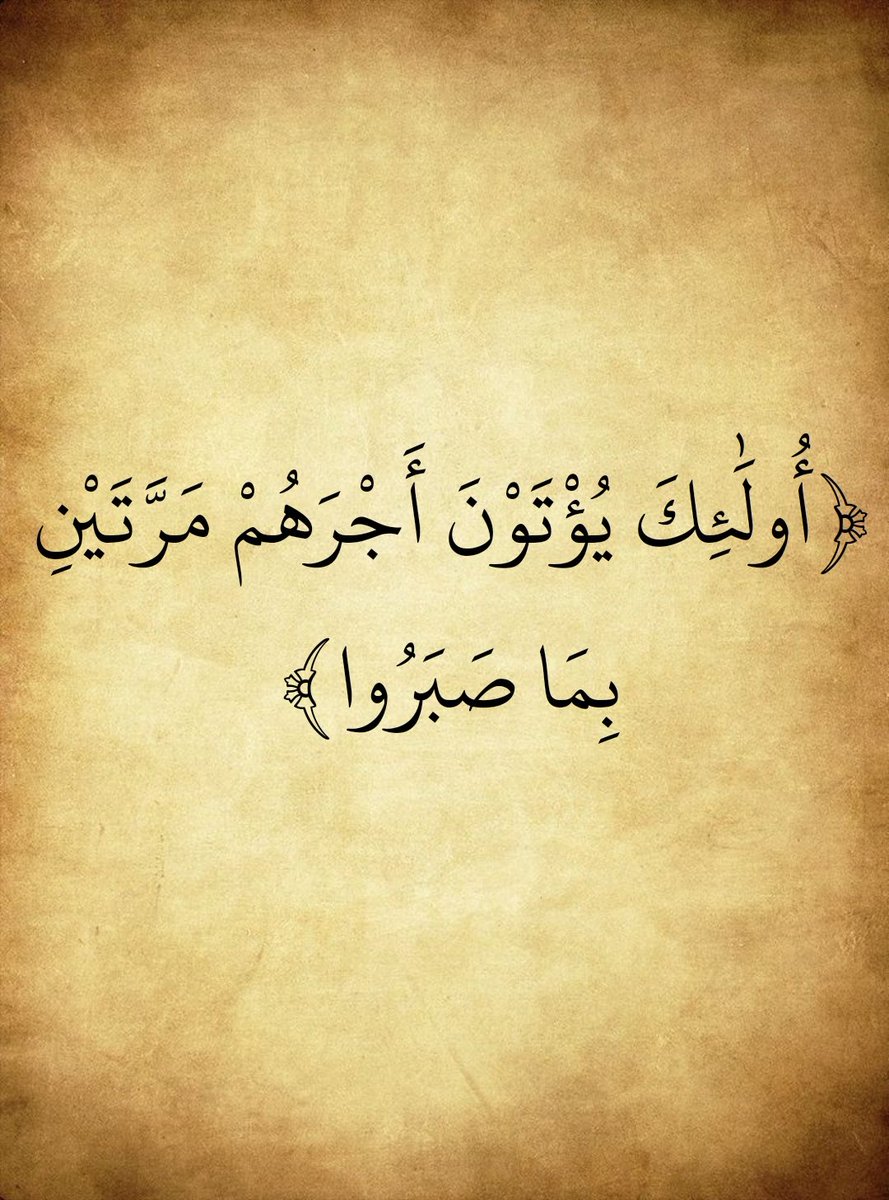 ﴿أُولَٰئِكَ يُؤْتَوْنَ أَجْرَهُمْ مَرَّتَيْنِ
بِمَا صَبَرُوا﴾